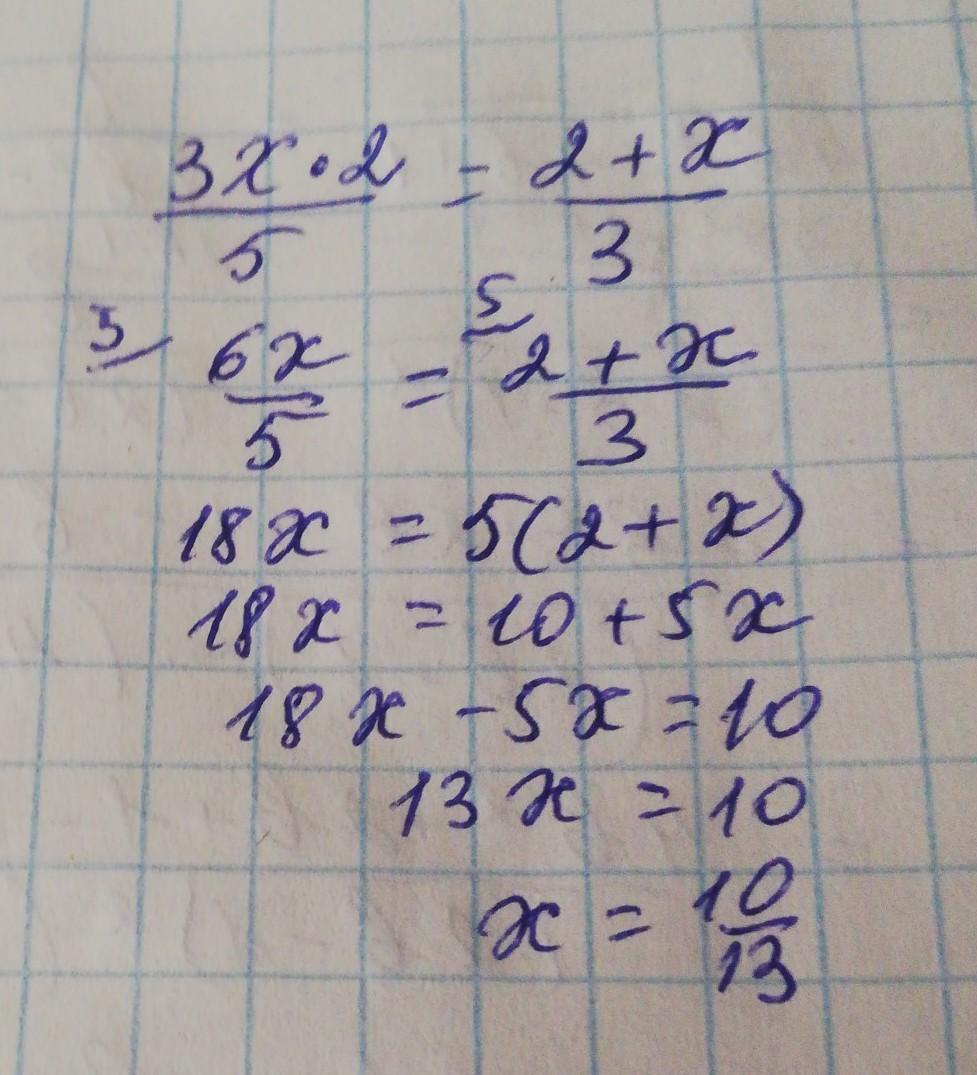 3x·2/5 = 2+x/3
3/ 6x/5 = 5/ 2+x/3
18x = 5(2+x)
18x = 10+5x
18x -5x = 10
13x = 10
x = 10/13